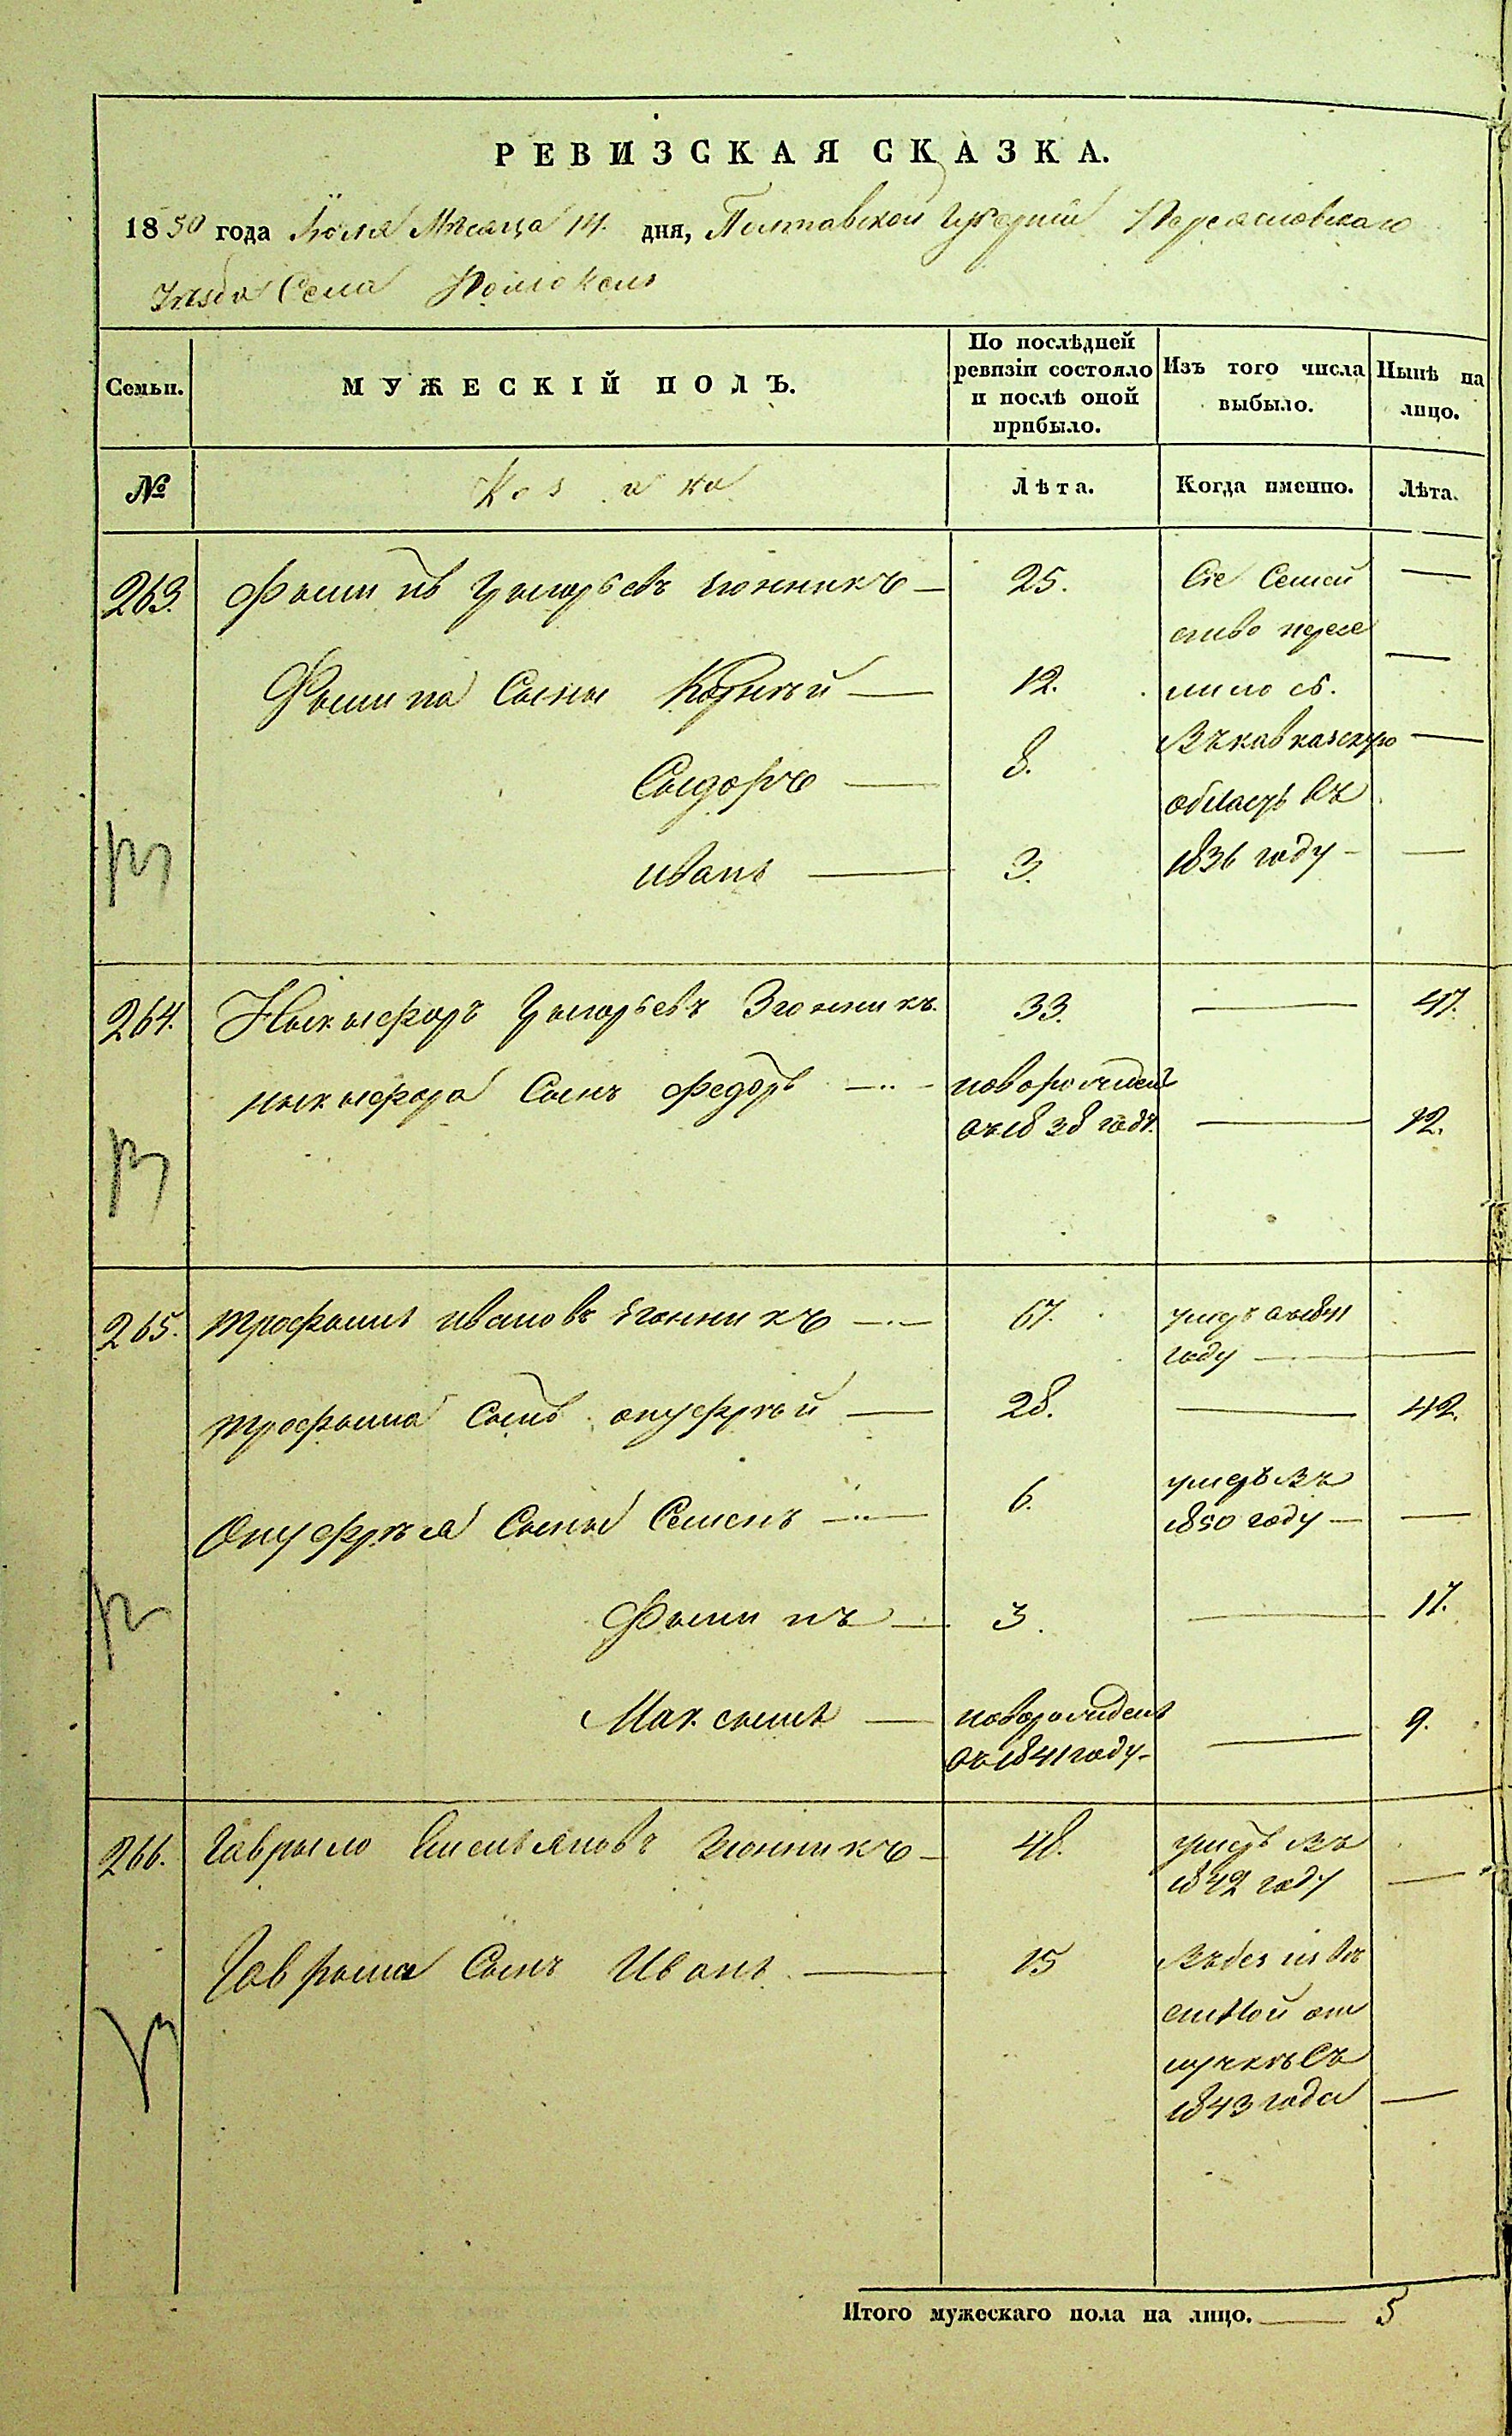 РЕВИЗСКАЯ СКАЗКА.
1850 года Июля Мѣсяца 14. дня, Полтавской Губерніи Переясловскаго
Уѣзда Села
Семьи.
МУЖЕСКІЙ ПОЛЪ.
По послѣдней
ревизіи состояло
и послѣ оной
прибыло.
Изъ того числа
выбыло.
Нынѣ на
лицо.
№
Козака
Лѣта.
Когда именно.
Лѣта.
263. Филипъ Григорьевъ Згонникъ — 25. Сіе Семей —
ство пересе
Филипа Сыны Корнѣй — 12. лило сь. —
Въ кавказскую —
Сыдоръ — 8.
область въ
Иванъ — 3. 1836 году — —
264. Никифоръ Григорьевъ Згонникъ. 33. — 47.
Никифора Сынъ Федоръ — новорожденъ
въ 1838 году. — 12.
265. Трофимъ Ивановъ Згонникъ — 67. умеръ въ 1841
году — —
Трофима Сынъ Онуфрѣй — 28. — 42.
Онуфрѣя Сыны Семенъ — 6. умеръ въ
1850 году — —
Филипъ — 3. — 17.
Максимъ — новорожденъ — 9.
въ 1841 году —
266. Гаврыло Емельяновъ Згонникъ — 48. умеръ въ
1842 году —
Гаврыла Сынъ Иванъ — 15 Въ безъизвѣ
стной от
лучкѣ Съ
1843 года —
Итого мужескаго пола на лицо. — 5